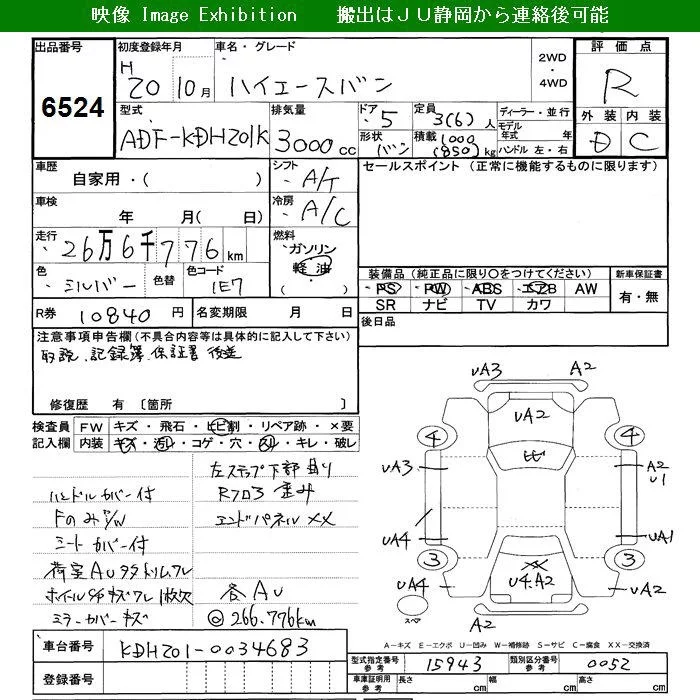 映像 Image Exhibition 搬出はＪＵ静岡から連絡後可能
出品番号 初度登録年月 車名・グレード 2WD・4WD 評価点
6524 H 20 10月 ハイエースバン R
型式 排気量 ドア 定員 ディーラー・並行 外装 内装
ADF-KDH201K 3000cc 5 3(6)人 モデル年式 年 D C
形状 バン 積載 1000(850)kg ハンドル 左・右
車歴 自家用・( ) シフト A/T セールスポイント（正常に機能するものに限ります）
車検 年 月( 日) 冷房 A/C
走行 26万6千776km 燃料 ガソリン 軽油 ( )
色 シルバー 色替 色コード 1E7 装備品（純正品に限り○をつけてください） 新車保証書
PS PW ABS エアB AW 有・無
SR ナビ TV カワ
R券 10840円 名変期限 月 日 後日品
注意事項申告欄(不具合内容等は具体的に記入して下さい)
取説、記録簿、保証書 後送
修復歴 有〔箇所 〕
検査員記入欄 FW キズ・飛石・ヒビ割・リペア跡・×要
内装 キズ・汚レ・コゲ・穴・スレ・キレ・破レ
左ステップ下部 曲り
ハンドルカバー付 Rフロア 歪み
エンドパネルXX
シートカバー付
ミラーカバーキズ 各AU
266.776km
UA3 A2
UA2
4 ヒビ 4
UA3 A2 U1
UA4 UA1
3 XX 3
UA4 U4.A2 UA2
スペア A2
A－キズ E－エクボ U－凹み W－補修跡 S－サビ C－腐食 XX－交換済
車台番号 KDH201-0034683 型式指定番号 参考 15943 類別区分番号 参考 0052
登録番号 車庫証明用 参考 長さ cm 幅 cm 高さ cm